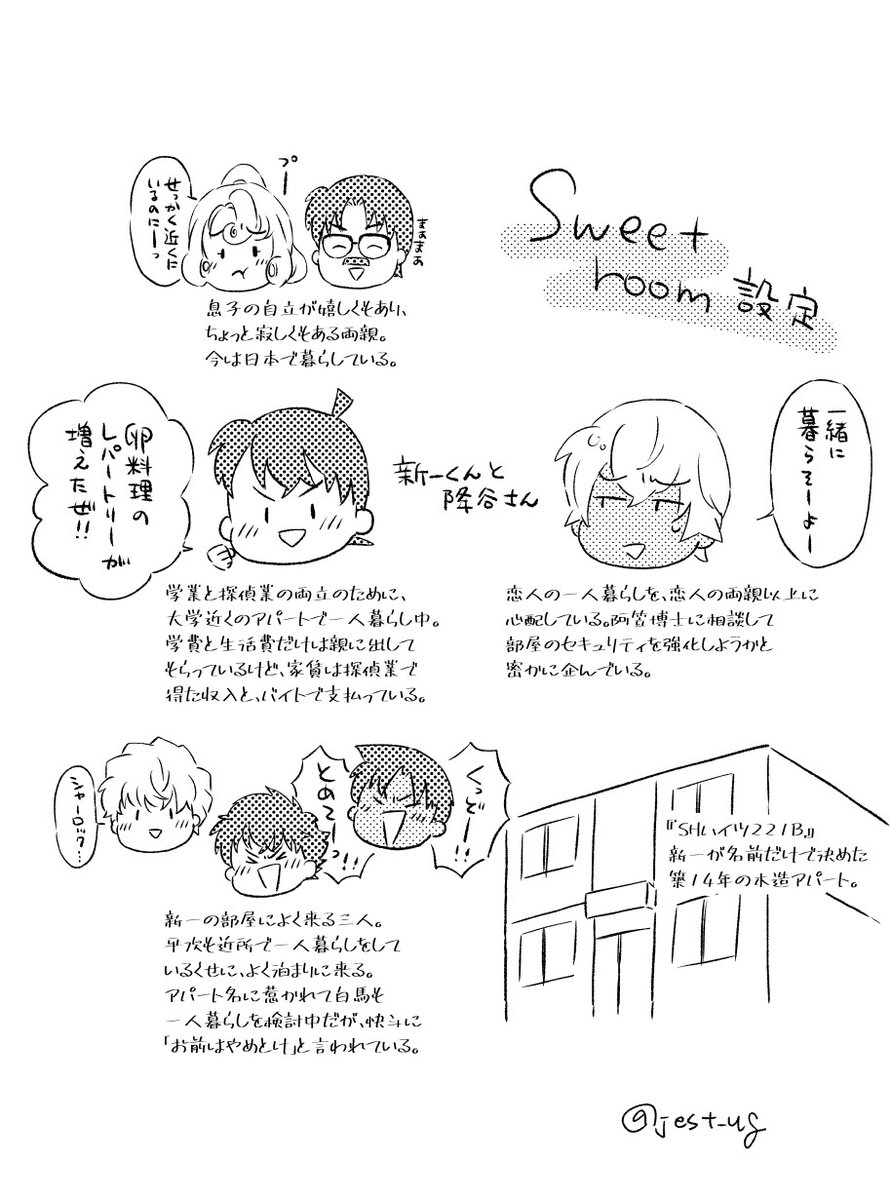 Sweet
room 設定
せっかく近くに
いるのにーっ
プー
まぁまぁ
息子の自立が嬉しくもあり、
ちょっと寂しくもある両親。
今は日本で暮らしている。
卵料理の
レパートリーが
増えたぜ!!
新一くんと
降谷さん
一緒に
暮らそーよー
学業と探偵業の両立のために、
大学近くのアパートで一人暮らし中。
学費と生活費だけは親に出して
もらっているけど、家賃は探偵業で
得た収入と、バイトで支払っている。
恋人の一人暮らしを、恋人の両親以上に
心配している。阿笠博士に相談して
部屋のセキュリティを強化しようかと
密かに企んでいる。
シャーロック…
とめてーっ!!
くっどー!!
新一の部屋によく来る三人。
平次も近所で一人暮らしをして
いるくせに、よく泊まりに来る。
アパート名に惹かれて白馬も
一人暮らしを検討中だが、快斗に
「お前はやめとけ」と言われている。
『SHハイツ221B』
新一が名前だけで決めた
築14年の木造アパート。
@jest_ug